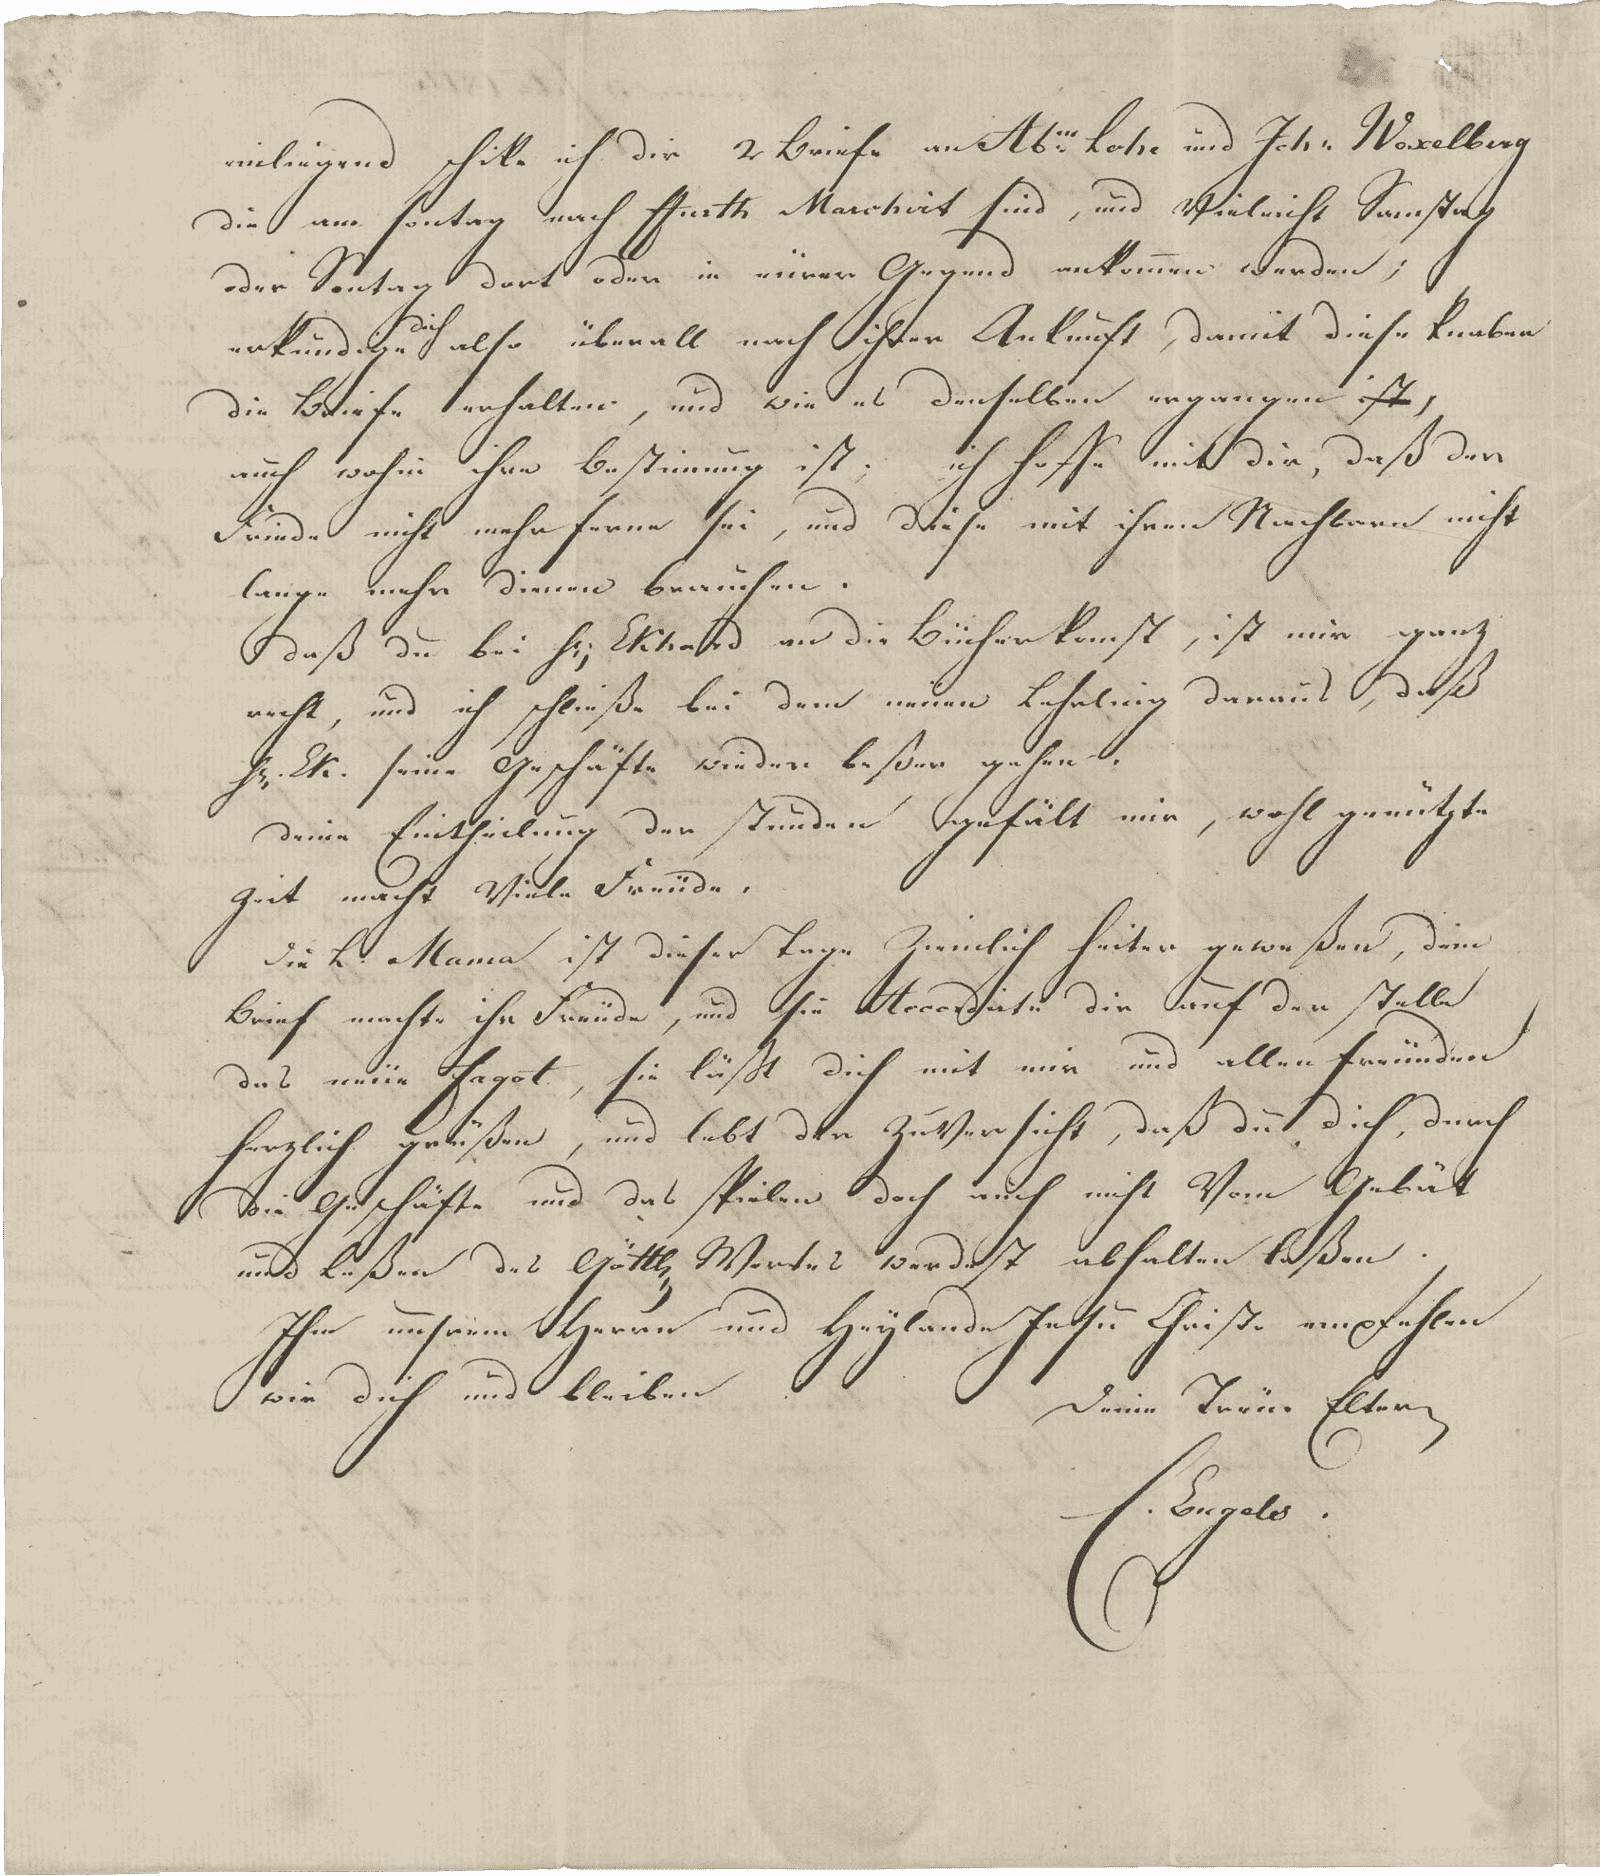 einliegend schike ich dir 2 Briefe an Abm Lohe und Joh: Woxelberg
die am Sontag nach Marchirt sind, und Vieleicht Samstag
oder Sontag dort oder in eürer Gegend ankom̄en werden;
erkundige dich also überall nach ihrer Ankunft, damit diese Knaben
die Briefe erhalten, und wie es denselben ergangen ist,
auch wohin ihre Bestim̄ung ist; ich hoffe mit dir, daß der
Friede nicht mehr ferne sei, und diese mit ihren Nachbarn nicht
lange mehr dienen brauchen.
daß du bei Hr; Ekhard an die Bücher komst, ist mir ganz
recht, und ich schließe bei dem neuen Lehrling daraus, daß
Hr. Ek. seine Geschäfte wieder beßer gehen.
deine Eintheilung der Stunden gefält mir, wohl genützte
Zeit macht Viele Freüde.
die L. Mama ist dieser Tage Ziemlich heiter geweßen, dein
Brief machte ihr Freüde, und sie Accordirte dir auf der Stelle
das neüe Fagot, sie läßt dich mit mir und allen Freünden
herzlich grüßen, und lebt der ZuVersicht, daß du dich, durch
die Geschäfte und das Spielen doch auch nicht Vom Gebät
und Leßen des Göttl; Wortes werdest abhalten laßen.
Ihm unsrem Herrn und Heÿlande Jesu Christo empfehlen
wir dich und bleiben
deine Treüe Eltern
C. Engels.